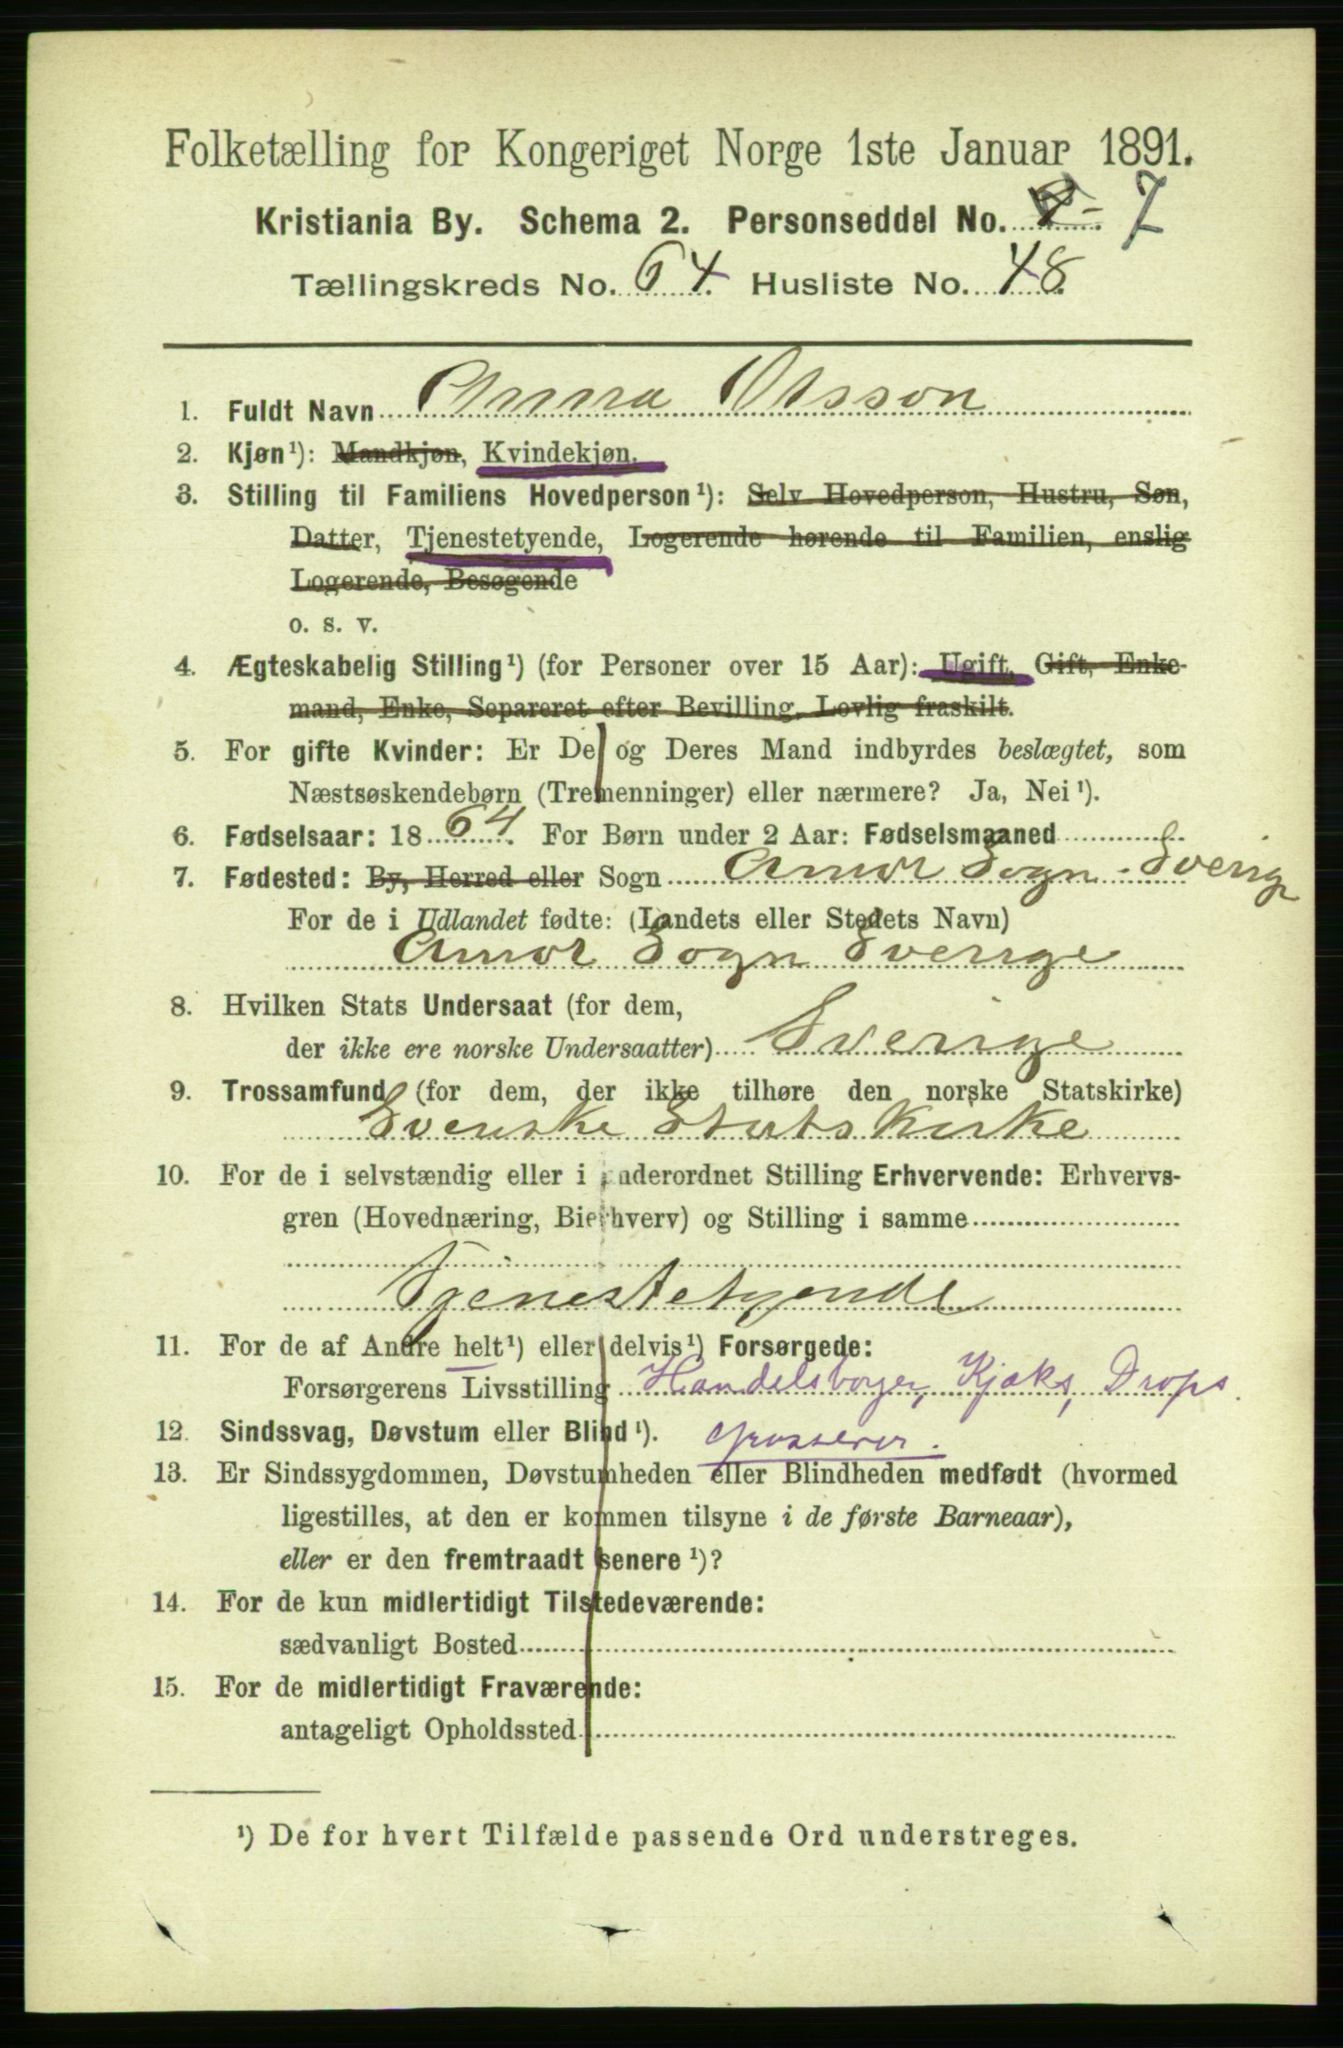 Folketælling for Kongeriget Norge 1ste Januar 1891.
Kristiania By. Schema 2. Personseddel No. 7
Tællingskreds No. 64 Husliste No. 48
1. Fuldt Navn Anna Olsson
2. Kjøn¹): Mandkjøn, Kvindekjøn.
3. Stilling til Familiens Hovedperson¹): Selv Hovedperson, Hustru, Søn,
Datter, Tjenestetyende, Logerende hørende til Familien, enslig
Logerende, Besøgende
o. s. v.
4. Ægteskabelig Stilling¹) (for Personer over 15 Aar): Ugift, Gift, Enke-
mand, Enke, Separeret efter Bevilling, Lovlig fraskilt.
5. For gifte Kvinder: Er De og Deres Mand indbyrdes beslægtet, som
Næstsøskendebørn (Tremenninger) eller nærmere? Ja, Nei¹).
6. Fødselsaar: 1864. For Børn under 2 Aar: Fødselsmaaned
7. Fødested: By, Herred eller Sogn Amot Sogn. Sverige
For de i Udlandet fødte: (Landets eller Stedets Navn)
Amot Sogn Sverige
8. Hvilken Stats Undersaat (for dem,
der ikke ere norske Undersaatter) Sverige
9. Trossamfund (for dem, der ikke tilhøre den norske Statskirke)
Svenske Statskirke
10. For de i selvstændig eller i underordnet Stilling Erhvervende: Erhvervs-
gren (Hovednæring, Bierhverv) og Stilling i samme
Tjenestetyende
11. For de af Andre helt¹) eller delvis¹) Forsørgede:
Forsørgerens Livsstilling Handelsborger, Kjæks, Drops
12. Sindssvag, Døvstum eller Blind¹). grosserer.
13. Er Sindssygdommen, Døvstumheden eller Blindheden medfødt (hvormed
ligestilles, at den er kommen tilsyne i de første Barneaar),
eller er den fremtraadt senere¹)?
14. For de kun midlertidigt Tilstedeværende:
sædvanligt Bosted
15. For de midlertidigt Fraværende:
antageligt Opholdssted
¹) De for hvert Tilfælde passende Ord understreges.